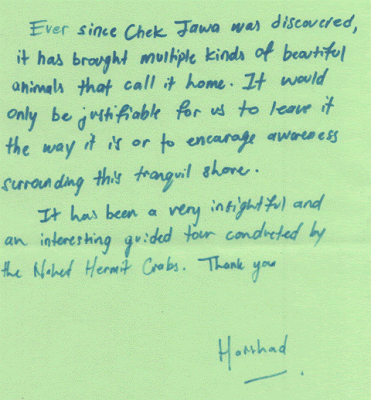 Ever since Chek Jawa was discovered,
it has brought multiple kinds of beautiful
animals that call it home. It would
only be justifiable for us to leave it
the way it is or to encarage awareness
surrounding this tranquil shore.
It has been a very insightful and
an interesting guided tour conducted by
the Naked Hermit Crabs. Thank you
Harshad